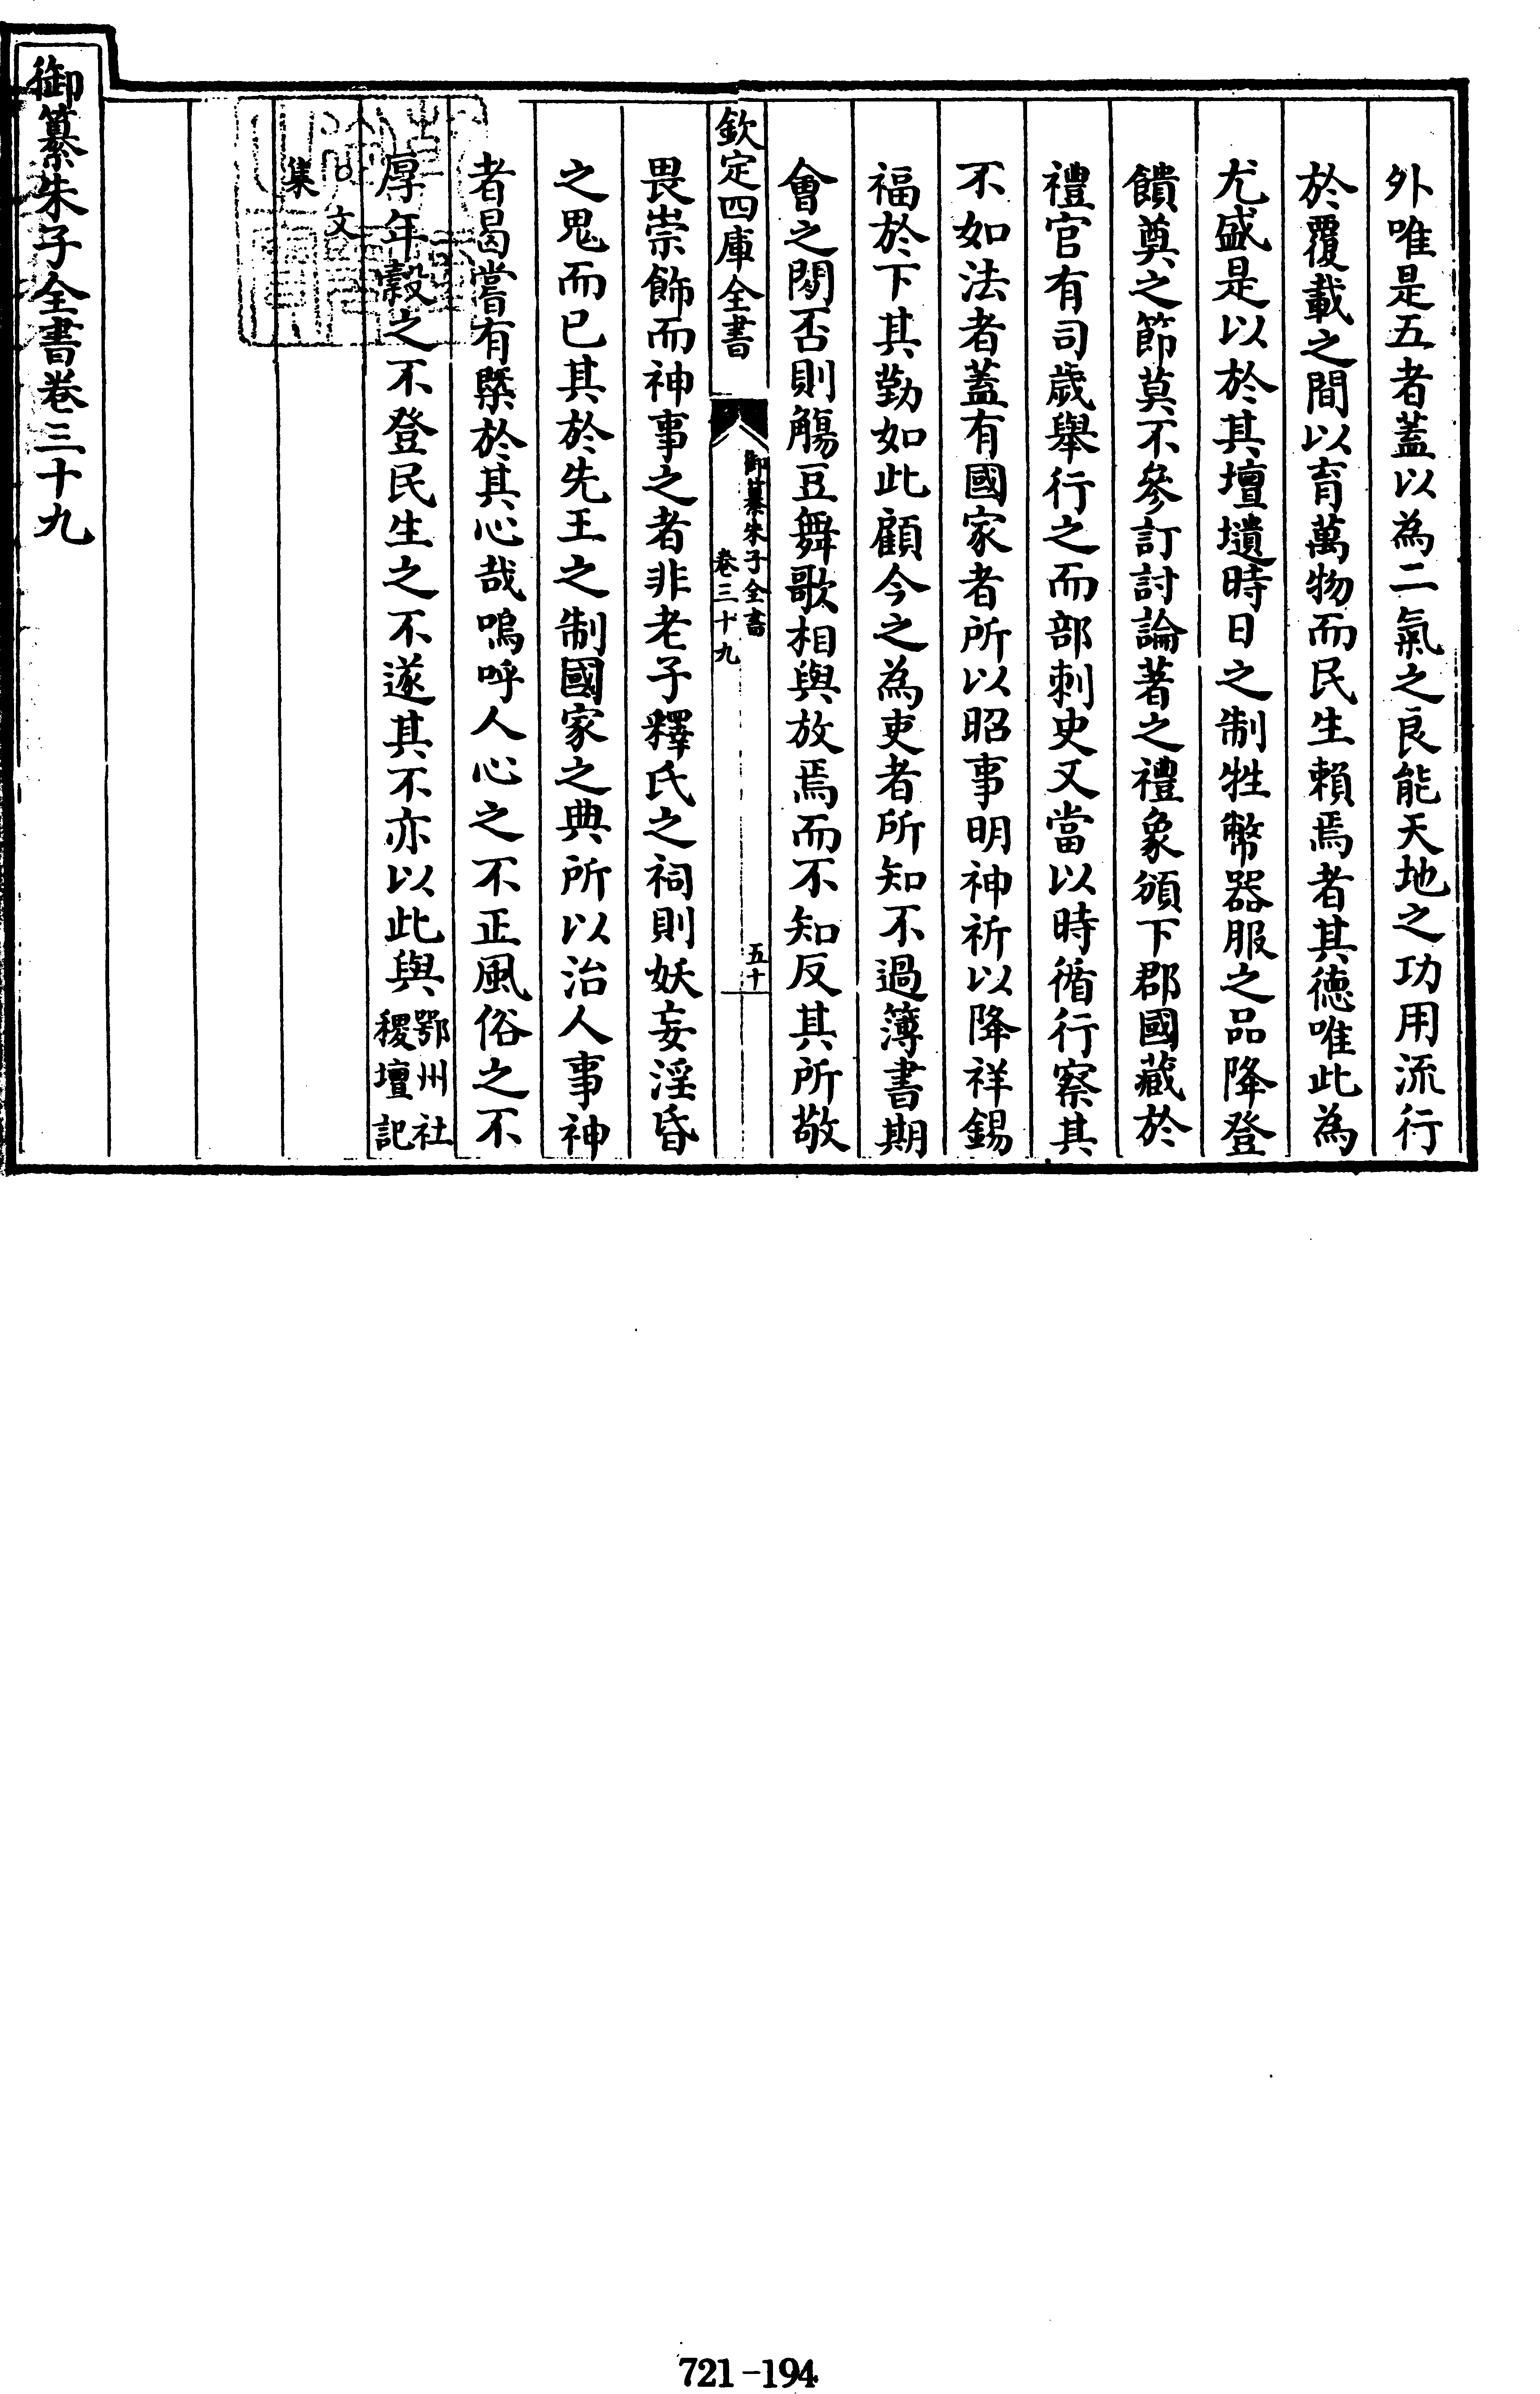 外唯是五者蓋以為二氣之良能天地之功用流行
於覆載之間以育萬物而民生賴焉者其德唯此為
尤盛是以於其壇壝時日之制牲幣器服之品降登
饋奠之節莫不參訂討論著之禮象頒下郡國藏於
禮官有司歲舉行之而部刺史又當以時循行察其
不如法者蓋有國家者所以昭事明神祈以降祥錫
福於下其勤如此顧今之為吏者所知不過簿書期
會之間否則觴豆舞歌相與放焉而不知反其所敬
欽定四庫全書
御纂朱子全書
卷三十九
五十
畏崇飾而神事之者非老子釋氏之祠則妖妄淫昏
之鬼而已其於先王之制國家之典所以治人事神
者曷嘗有槩於其心哉嗚呼人心之不正風俗之不
厚年穀之不登民生之不遂其不亦以此與鄂州社
稷壇記
○文
集
御纂朱子全書卷三十九
721-194